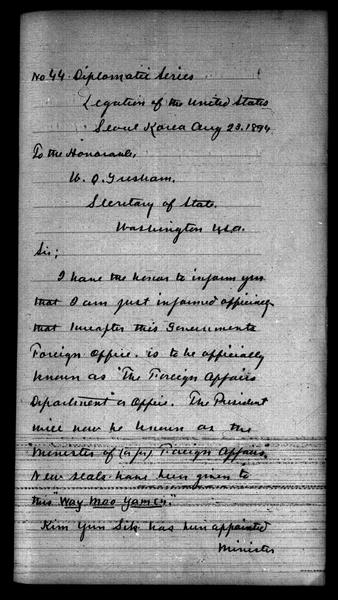 No 44 Diplomatic Series
Legation of the United States
Seoul Korea Aug 23. 1894
To the Honorable,
W. Q. Gresham.
Secretary of State.
Washington U.S.A.
Sir;
I have the honor to inform you
that I am just informed officially
that hereafter this Governments
Foreign Office. is to be officially
known as "The Foreign Affairs
Department" or Office. The President
will now be known as the
"Minister of (or for) Foreign Affairs."
New seals have been given to
this "Way Moo Yamen."
Kim Yun Sik has been appointed
Minister